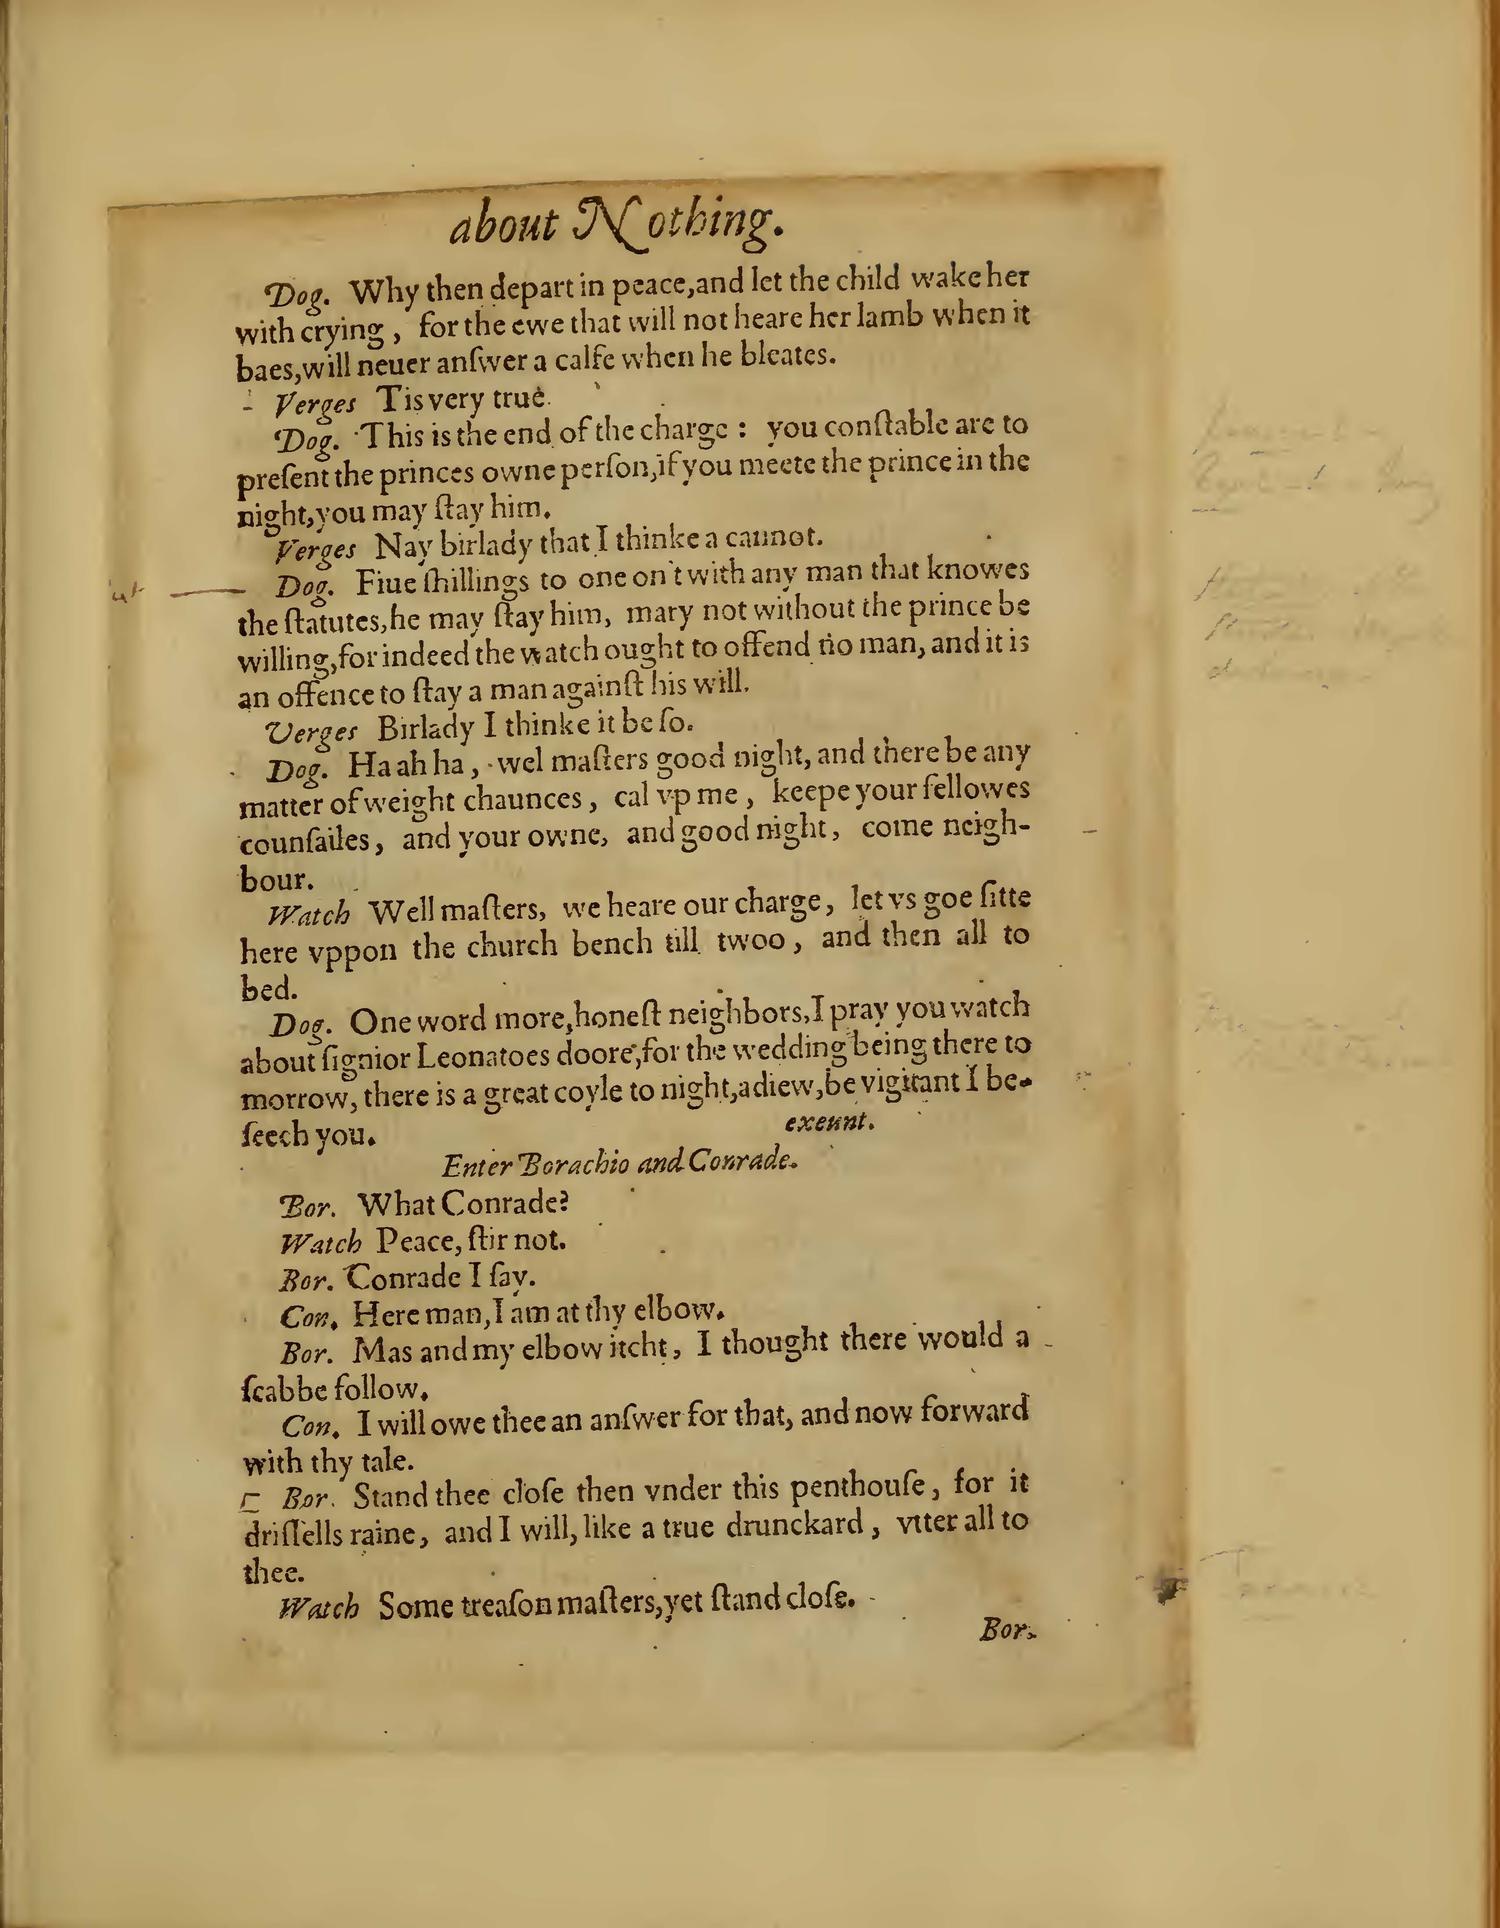 about Nothing.
Dog. Why then depart in peace,and let the child wake her
with crying , for the ewe that will not heare her lamb when it
baes,will neuer anſwer a calfe when he bleates.
Verges Tis very true.
Dog. This is the end of the charge : you conſtable are to
preſent the princes owne perſon,if you meete the prince in the
night,you may ſtay him.
Verges Nay birlady that I thinke a cannot.
Dog. Fiue ſhillings to one on't with any man that knowes
the ſtatutes,he may ſtay him, mary not without the prince be
willing,for indeed the watch ought to offend no man, and it is
an offence to ſtay a man againſt his will.
Verges Birlady I thinke it be ſo.
Dog. Ha ah ha , wel maſters good night, and there be any
matter of weight chaunces , cal vp me , keepe your fellowes
counſailes , and your owne, and good night , come neigh-
bour.
Watch Well maſters, we heare our charge , let vs goe ſitte
here vppon the church bench till twoo , and then all to
bed.
Dog. One word more,honeſt neighbors,I pray you watch
about ſignior Leonatoes doore,for the wedding being there to
morrow, there is a great coyle to night,adiew,be vigitant I be-
ſeech you. exeunt.
Enter Borachio and Conrade.
Bor. What Conrade?
Watch Peace, ſtir not.
Bor. Conrade I ſay.
Con. Here man,I am at thy elbow.
Bor. Mas and my elbow itcht , I thought there would a
ſcabbe follow.
Con. I will owe thee an anſwer for that, and now forward
with thy tale.
Bor. Stand thee cloſe then vnder this penthouſe , for it
driſſells raine , and I will, like a true drunckard , vtter all to
thee.
Watch Some treaſon maſters,yet ſtand cloſe.
Bor.